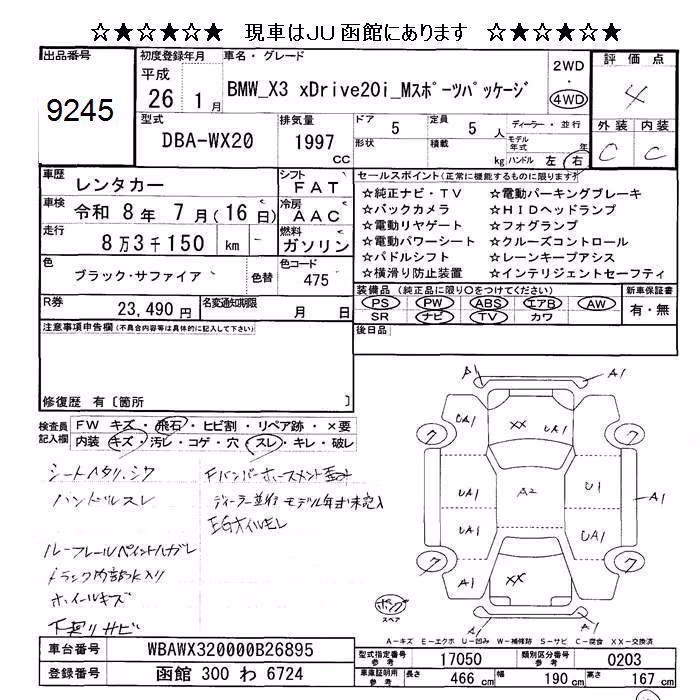 ☆★☆★☆★ 現車はJU函館にあります ☆★☆★☆★
出品番号
9245
初度登録年月
平成
26 1 月
車名・グレード
BMW_X3 xDrive20i_Mスポーツパッケージ
2WD
・
4WD
評価点
4
外装 内装
C C
型式
DBA-WX20
排気量
1997
CC
ドア 5
定員 5 人
形状
積載 kg
ディーラー・並行
モデル年式 年
ハンドル 左 右
車歴
レンタカー
シフト
FAT
車検
令和 8年 7月(16日)
冷房
AAC
走行
8万3千150 km
燃料
ガソリン
色
ブラック・サファイア
色替
色コード
475
R券
23,490 円
名変通知期限
月 日
セールスポイント(正常に機能するものに限ります)
☆純正ナビ・TV ☆電動パーキングブレーキ
☆バックカメラ ☆HIDヘッドランプ
☆電動リヤゲート ☆フォグランプ
☆電動パワーシート ☆クルーズコントロール
☆パドルシフト ☆レーンキープアシス
☆横滑り防止装置 ☆インテリジェントセーフティ
装備品(純正品に限り○をつけてください)
PS PW ABS エアB AW
SR ナビ TV カワ
新車保証書
有・無
後日品
注意事項申告欄(不具合内容等は具体的に記入して下さい)
修復歴 有〔箇所 〕
検査員記入欄
FW キズ・飛石・ヒビ割・リペア跡・×要
内装 キズ・汚レ・コゲ・穴・スレ・キレ・破レ
シートヘタリ.シワ
ハンドルスレ
ルーフレールペイントハガレ
トランク内部込入り
ホイールキズ
下廻りサビ
ディーラー並行 モデル年式未記入
EGオイルモレ
A1 A1
UA1 XX UA1 A1
ワ ワ
UA1 A2 U1 A1
UA1 UA1
ワ ワ
A1 XX A1
A1 A1
スペア
A-キズ E-エクボ U-凹み W-補修跡 S-サビ C-腐食 XX-交換済
車台番号
WBAWX320000B26895
登録番号
函館 300 わ 6724
型式指定番号
参考
17050
類別区分番号
参考
0203
車庫証明用
参考
長さ 466 cm
幅 190 cm
高さ 167 cm